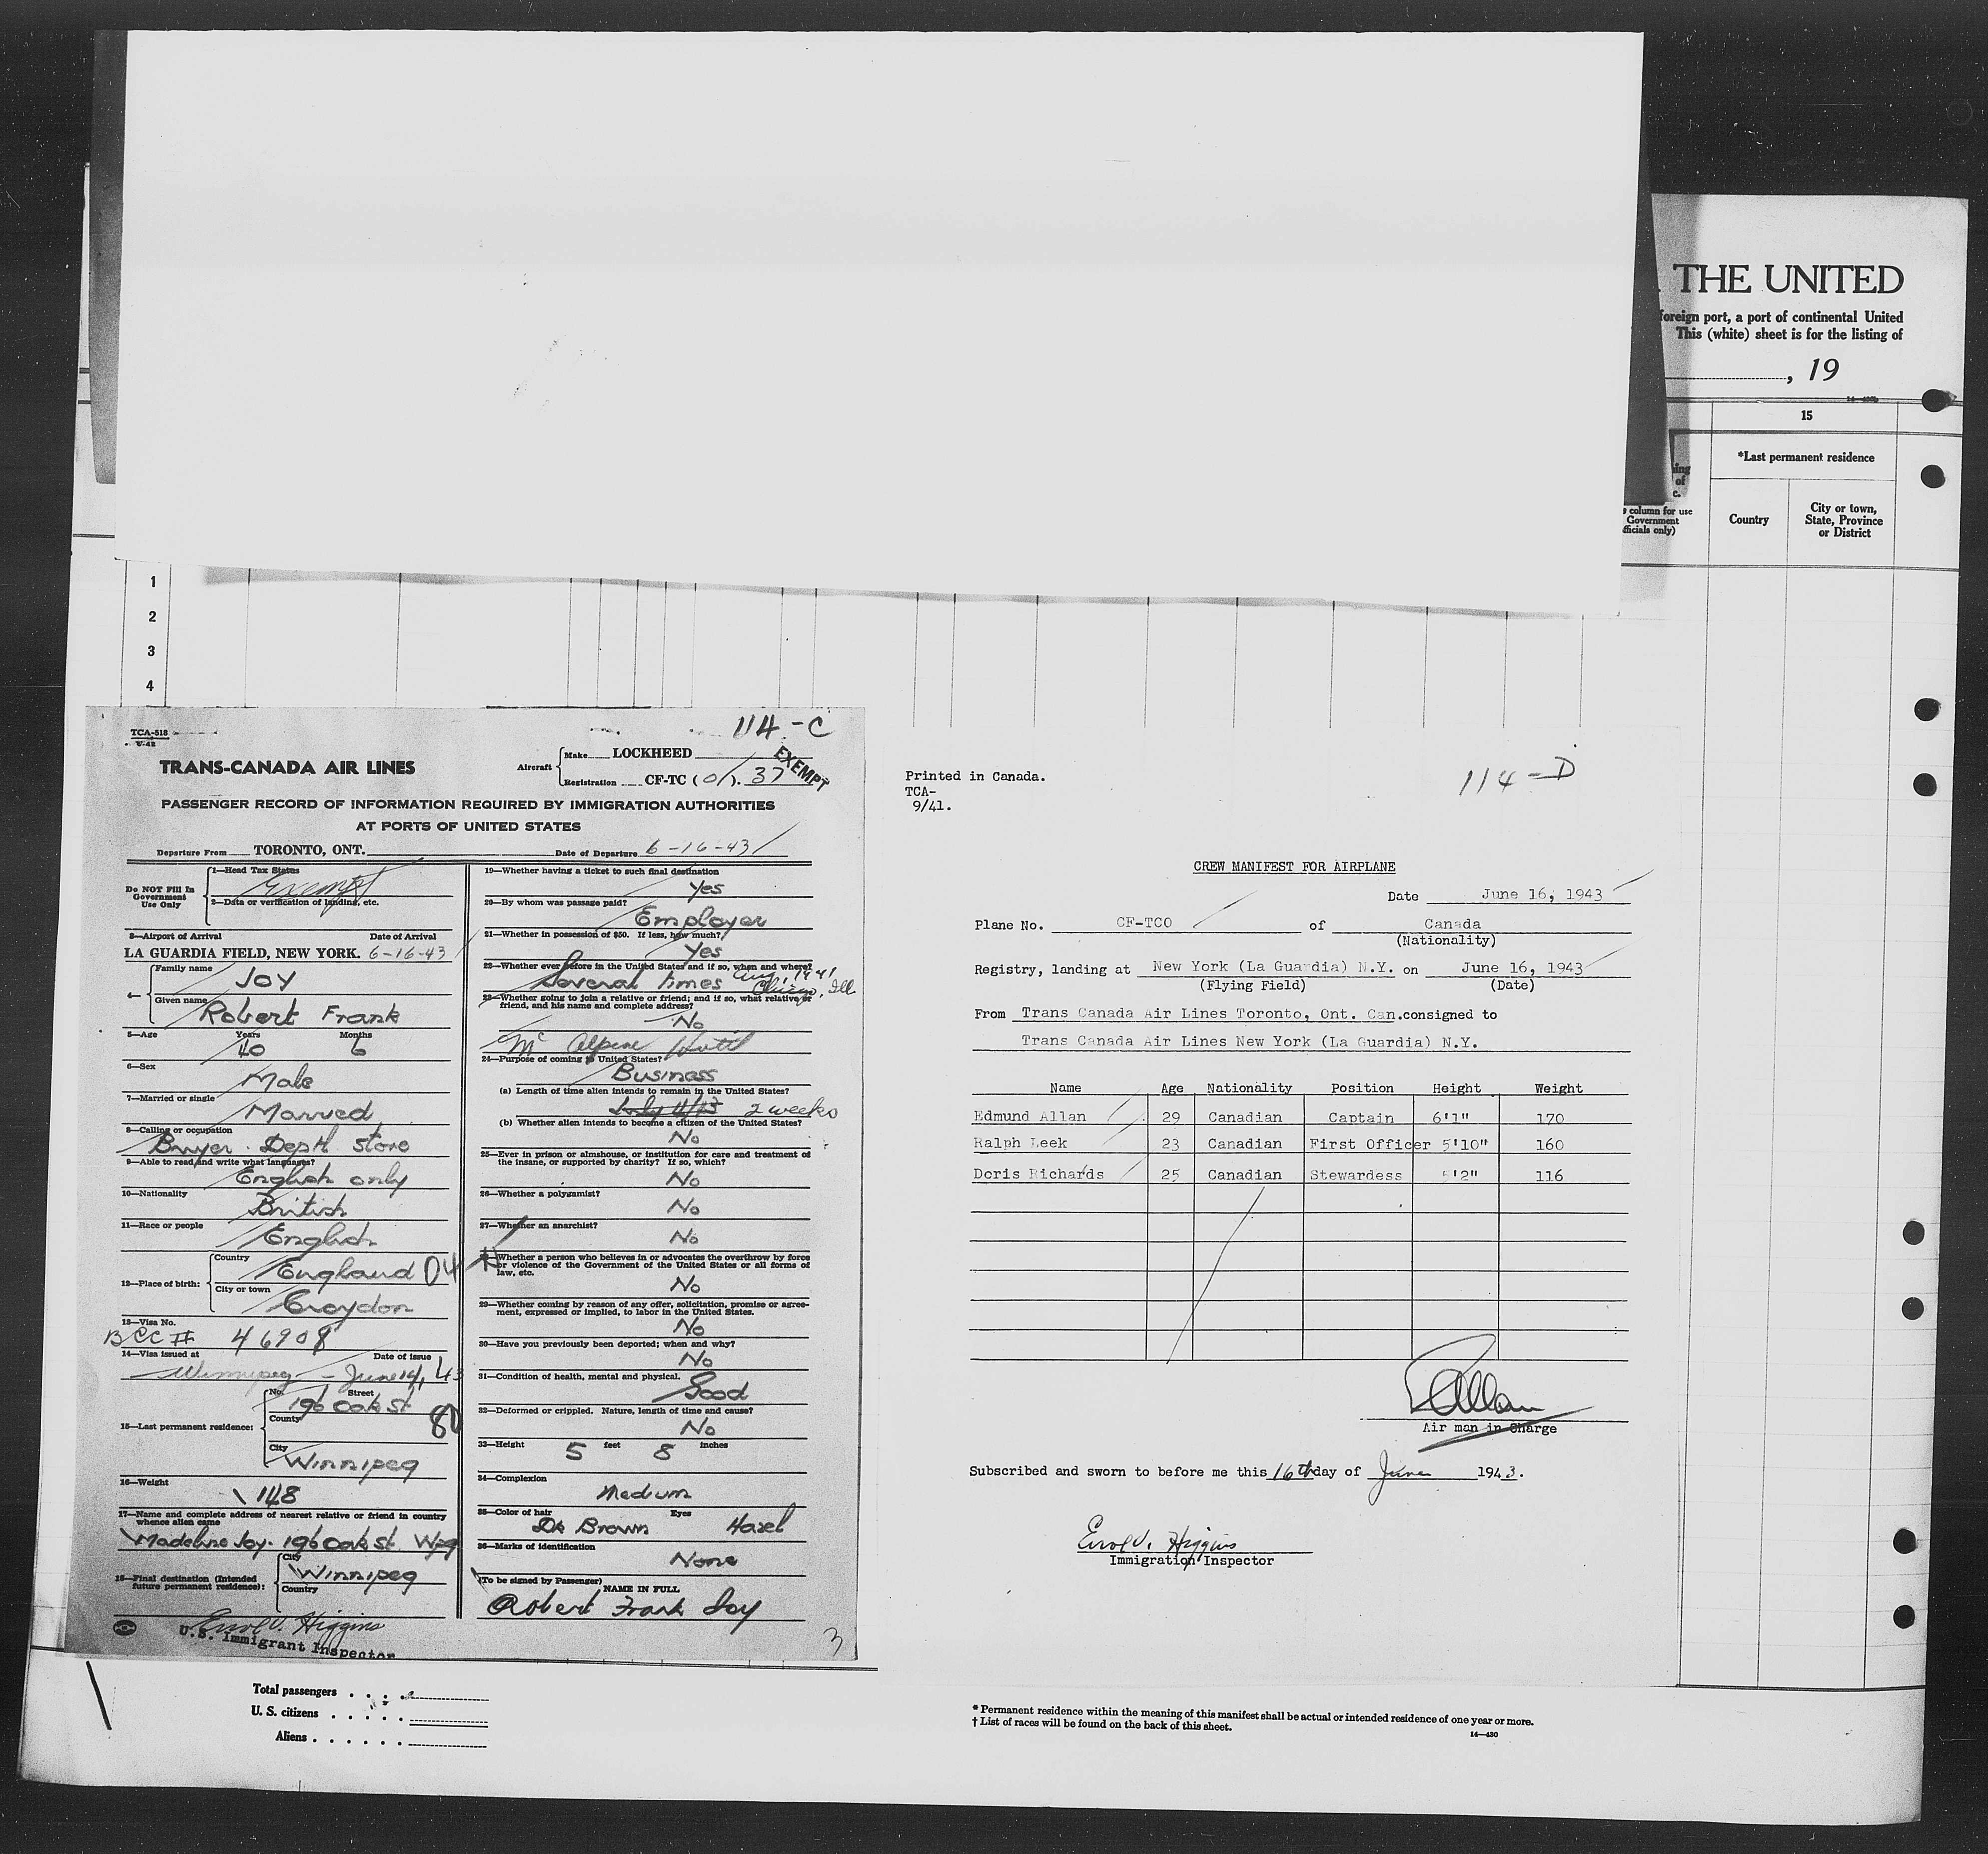 THE UNITED
foreign port, a port of continental United
This (white) sheet is for the listing of
, 19
15
*Last permanent residence
column for use
Government
officials only)
Country
City or town,
State, Province
or District
1
2
3
4
114-C
TCA-518
TRANS-CANADA AIR LINES
Aircraft
Make LOCKHEED
Registration CF-TC (O). 37
EXEMPT
PASSENGER RECORD OF INFORMATION REQUIRED BY IMMIGRATION AUTHORITIES
AT PORTS OF UNITED STATES
Departure From TORONTO, ONT. Date of Departure 6-16-43
Do NOT Fill In
Government
Use Only
1—Head Tax Status
Exempt
2—Data or verification of landing, etc.
3—Airport of Arrival Date of Arrival
LA GUARDIA FIELD, NEW YORK. 6-16-43
4—
Family name
Joy
Given name
Robert Frank
5—Age Years Months
40 6
6—Sex
Male
7—Married or single
Married
8—Calling or occupation
Buyer Dept. Store
9—Able to read and write what languages?
English only
10—Nationality
British
11—Race or people
English
12—Place of birth:
Country
England 04
City or town
Croydon
13—Visa No.
BCC # 46908
14—Visa issued at Date of issue
Winnipeg - June 14, 43
15—Last permanent residence:
No. Street
196 Oak St
County
80
City
Winnipeg
16—Weight
148
17—Name and complete address of nearest relative or friend in country
whence alien came
Madeline Joy. 196 Oak St. Wpg
18—Final destination (Intended
future permanent residence):
City
Winnipeg
Country
Errol V. Higgins
U.S. Immigrant Inspector
19—Whether having a ticket to such final destination
Yes
20—By whom was passage paid?
Employer
21—Whether in possession of $50. If less, how much?
Yes
22—Whether ever before in the United States and if so, when and where?
Several times Aug. 1941
Chicago, Ill
23—Whether going to join a relative or friend; and if so, what relative or
friend, and his name and complete address?
No
McAlpine Hotel
24—Purpose of coming to United States?
Business
(a) Length of time alien intends to remain in the United States?
2 weeks
(b) Whether alien intends to become a citizen of the United States?
No
25—Ever in prison or almshouse, or institution for care and treatment of
the insane, or supported by charity? If so, which?
No
26—Whether a polygamist?
No
27—Whether an anarchist?
No
Whether a person who believes in or advocates the overthrow by force
or violence of the Government of the United States or all forms of
law, etc.
No
29—Whether coming by reason of any offer, solicitation, promise or agree-
ment, expressed or implied, to labor in the United States.
No
30—Have you previously been deported; when and why?
No
31—Condition of health, mental and physical.
Good
32—Deformed or crippled. Nature, length of time and cause?
No
33—Height 5 feet 8 inches
34—Complexion
Medium
35—Color of hair Eyes
Dk Brown Hazel
36—Marks of identification
None
(To be signed by Passenger)
NAME IN FULL
Robert Frank Joy
3
Printed in Canada.
TCA-
9/41.
114-D
CREW MANIFEST FOR AIRPLANE
Date June 16, 1943
Plane No. CF-TCO of Canada
(Nationality)
Registry, landing at New York (La Guardia) N.Y. on June 16, 1943
(Flying Field) (Date)
From Trans Canada Air Lines Toronto, Ont. Can. consigned to
Trans Canada Air Lines New York (La Guardia) N.Y.
Name Age Nationality Position Height Weight
Edmund Allan 29 Canadian Captain 6'1" 170
Ralph Leek 23 Canadian First Officer 5'10" 160
Doris Richards 25 Canadian Stewardess 5'2" 116
E Allan
Air man in Charge
Subscribed and sworn to before me this 16th day of June 1943.
Errol V. Higgins
Immigration Inspector
Total passengers
U. S. citizens
Aliens
* Permanent residence within the meaning of this manifest shall be actual or intended residence of one year or more.
† List of races will be found on the back of this sheet.
14—430